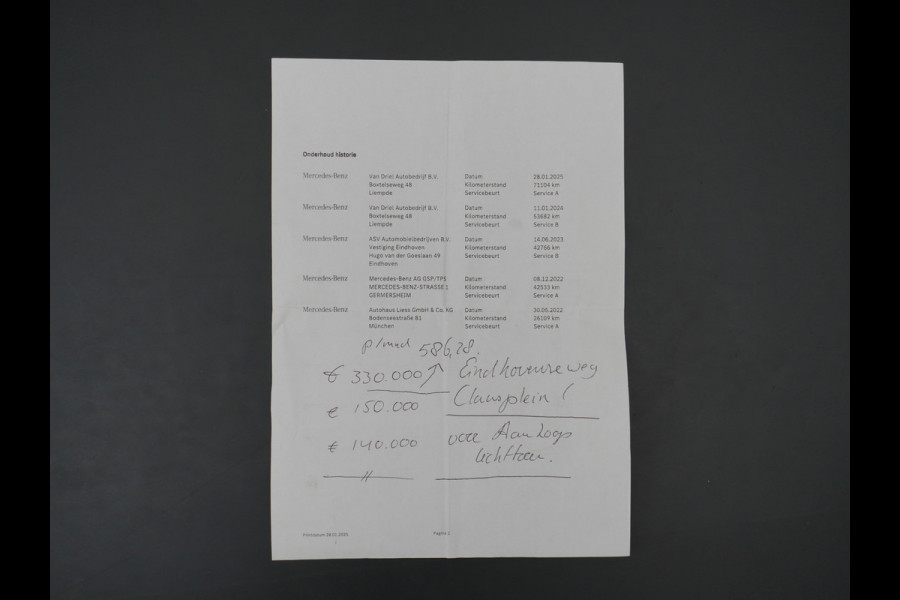 Onderhoud historie
Mercedes-Benz Van Driel Autobedrijf B.V. Datum 28.01.2025
Boxtelseweg 48 Kilometerstand 71104 km
Liempde Servicebeurt Service A
Mercedes-Benz Van Driel Autobedrijf B.V. Datum 11.01.2024
Boxtelseweg 48 Kilometerstand 53682 km
Liempde Servicebeurt Service B
Mercedes-Benz ASV Automobielbedrijven B.V. Datum 14.06.2023
Vestiging Eindhoven Kilometerstand 42766 km
Hugo van der Goeslaan 49 Servicebeurt Service B
Eindhoven
Mercedes-Benz Mercedes-Benz AG GSP/TPS Datum 09.12.2022
MERCEDES-BENZ-STRASSE 1 Kilometerstand 42533 km
GERMERSHEIM Servicebeurt Service A
Mercedes-Benz Autohaus Liess GmbH & Co. KG Datum 30.05.2022
Bodenseestraße 81 Kilometerstand 26109 km
München Servicebeurt Service A
p/mnd 586,28.
€ 330.000 Eindhovenseweg
€ 150.000 Clausplein
€ 140.000 voor Aankoop
Pagina 2